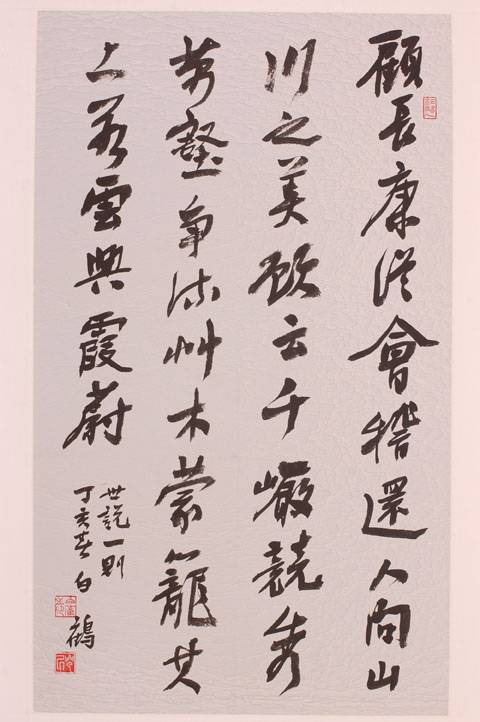 顧長康從會稽還人問山
川之美顧云千巖競秀
萬壑爭流艸木蒙籠其
上若雲興霞蔚
世說一則
丁亥春白